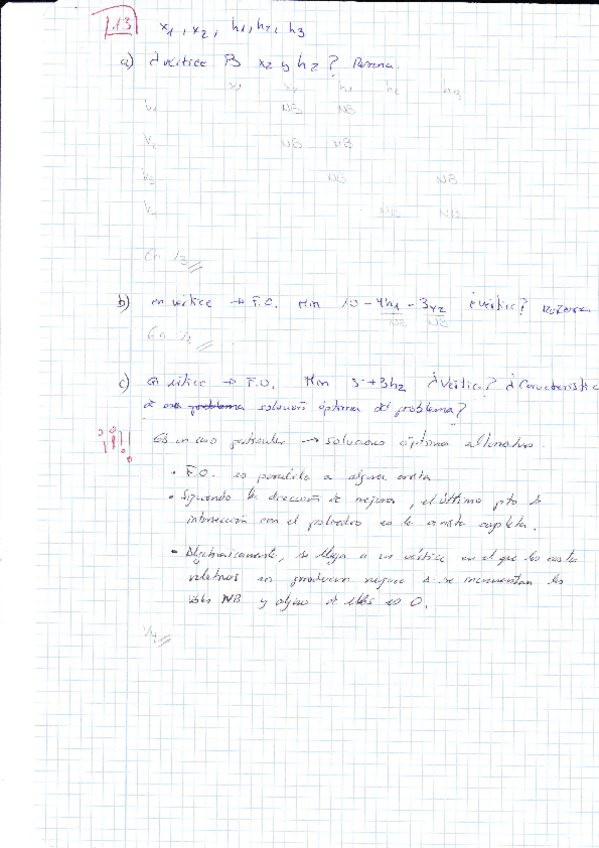 1.13 x1, x2, h1, h2, h3
a) ¿vértice B x2 y h2? Razona.
x1 x2 h1 h2 h3
V1 NB NB
V2 NB NB
V3 NB NB
V4 NB NB
En V3
b) en vértice → F.O. Min 10 - 4h1 - 3x2 ¿vértice? Razona
NB NB
En V2
c) en vértice → F.O. Min 5 + 3h2 ¿vértice? ¿Característica
de problema solución óptima del problema?
Es un caso particular → soluciones óptimas alternativas.
• F.O. es paralela a alguna arista
• Siguiendo la dirección de mejora, el último pto de
intersección con el poliedro es la arista completa.
• Algebraicamente, se llega a un vértice en el que los costes
relativos no producen mejora si se incrementan las
vbles NB y alguno de ellos es 0.
V4